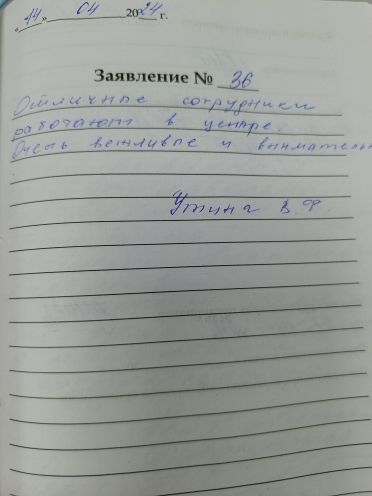 «11» 04 2024 г.
Заявление № 36
Отличные сотрудники
работают в центре.
Очень вежливые и вниматель
Утина В. Ф.